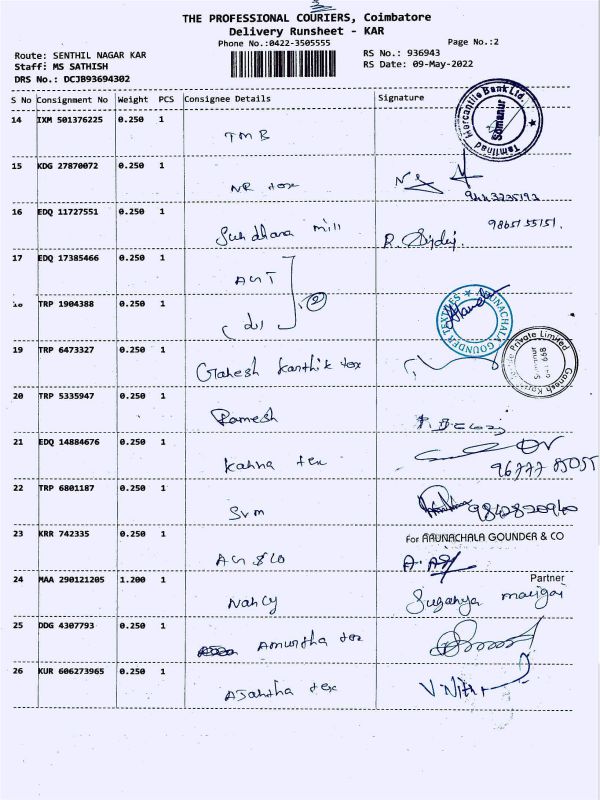 THE PROFESSIONAL COURIERS, Coimbatore
Delivery Runsheet - KAR
Phone No.:0422-3505555
Page No.:2
Route: SENTHIL NAGAR KAR
RS No.: 936943
Staff: MS SATHISH
RS Date: 09-May-2022
DRS No.: DCJB93694302
S No Consignment No Weight PCS Consignee Details Signature
14 IXM 501376225 0.250 1
TMB
Tamilnad Mercantile Bank Ltd.
Somanur
15 KDG 27870072 0.250 1
NR tex
16 EDQ 11727551 0.250 1
mill R.
9865155151.
17 EDQ 17385466 0.250 1
AGT
ARUNACHALA GOUNDER TEXTILES
TRP 1904388 0.250 1
2
19 TRP 6473327 0.250 1
Ganesh Karthik tex
Private Limited
Ganesh
20 TRP 5335947 0.250 1
Ramesh
21 EDQ 14884676 0.250 1
Kanna tex
22 TRP 6801187 0.250 1
Svm
23 KRR 742335 0.250 1
For ARUNACHALA GOUNDER & CO
AG &
24 MAA 290121205 1.200 1
Partner
Nancy
25 DDG 4307793 0.250 1
Amurtha tex
26 KUR 606273965 0.250 1
Ajantha tex